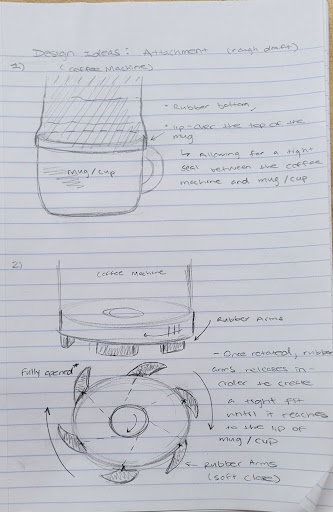 Design Ideas: Attachment (rough draft)
1) (Coffee Machine)
- Rubber bottom,
- lip-over the top of the
mug
↳ Allowing for a tight
seal between the coffee
machine and mug/cup
Mug/Cup
2)
Coffee Machine
Rubber Arms
- Once rotated, rubber
arms releases in-
order to create
a tight fit
until it reaches
to the lip of
mug/cup
Fully opened*
Rubber Arms
(soft close)